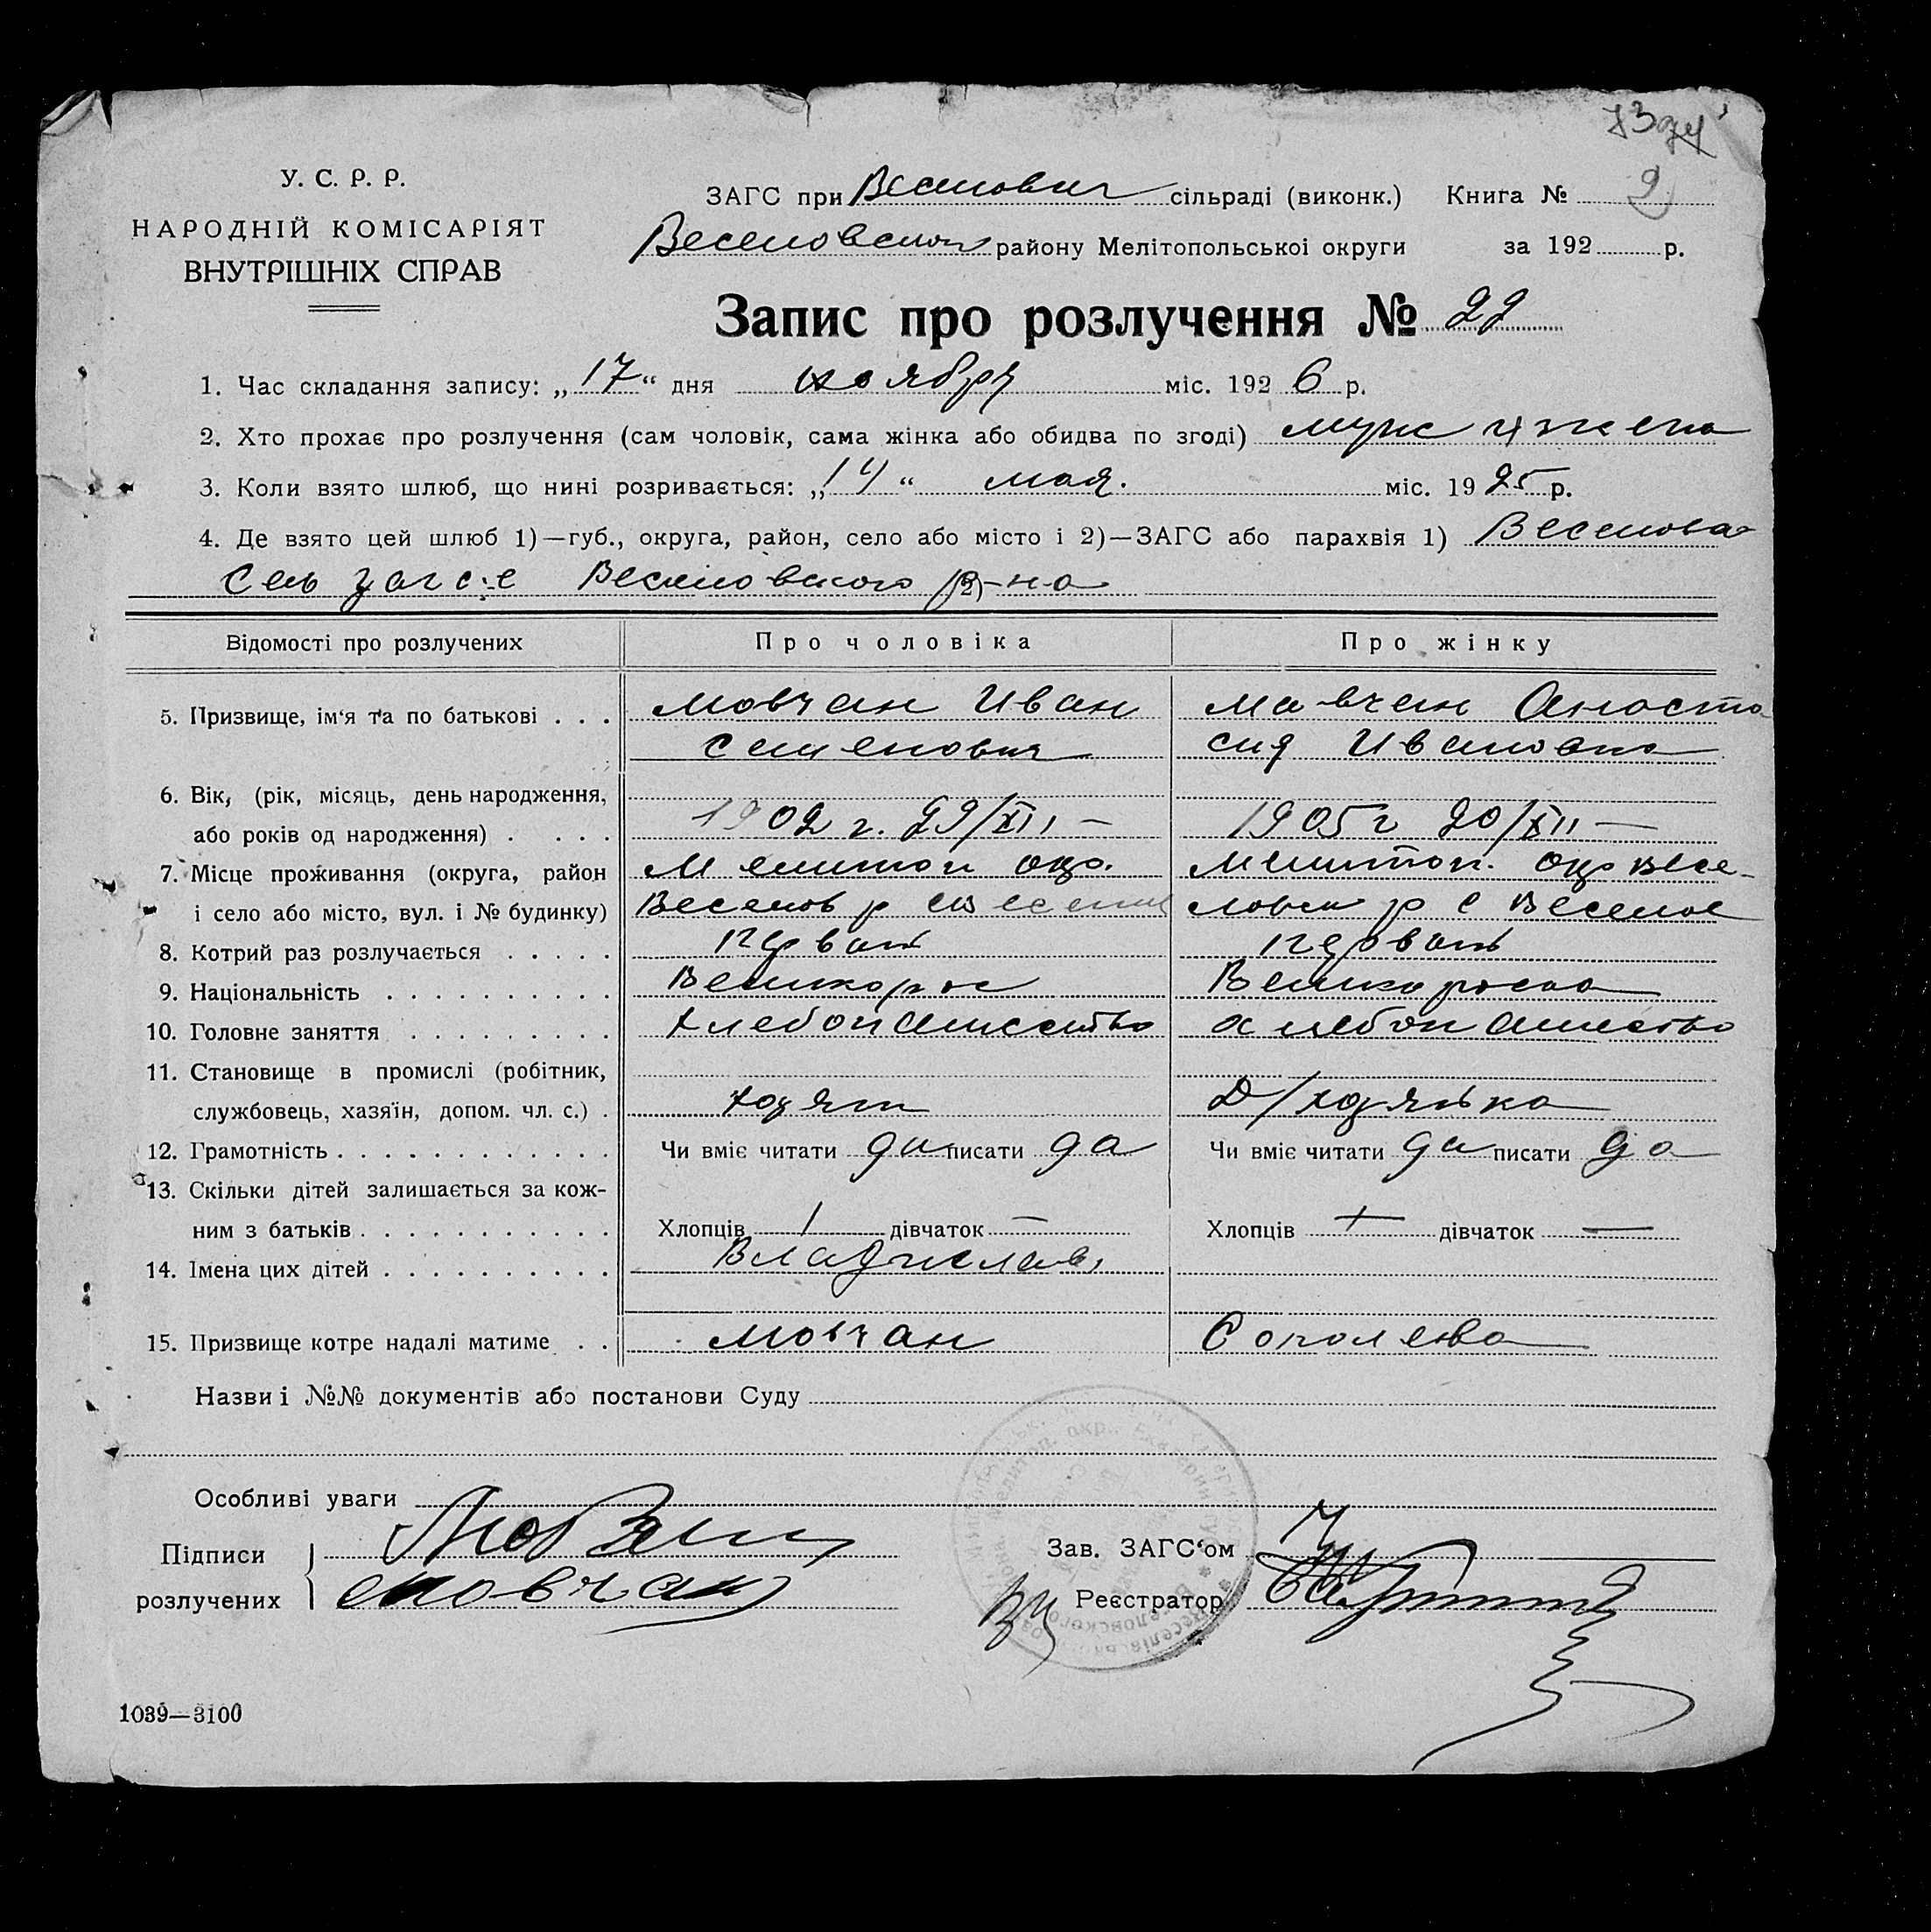 У. С. Р. Р.
НАРОДНІЙ КОМІСАРІЯТ
ВНУТРІШНІХ СПРАВ
ЗАГС при сільраді (виконк.) Книга № 2
Веселовском району Мелітопольської округи за 192 р.
Запис про розлучення № 22
1. Час складання запису: „17“ дня ноября міс. 1926 р.
2. Хто прохає про розлучення (сам чоловік, сама жінка або обидва по згоді) муж и жена
3. Коли взято шлюб, що нині розривається: „14“ мая. міс. 1925 р.
4. Де взято цей шлюб 1)—губ., округа, район, село або місто і 2)—ЗАГС або парахвія 1)
Сель загсе Веселовского р-на
Відомості про розлучених Про чоловіка Про жінку
5. Призвище, ім‘я та по батькові . . . Мовчан Иван Мавчан Анаста
Семенович сия Ивановна
6. Вік, (рік, місяць, день народження,
або років од народження) . . . . 1902 г. 29/XII – 1905 г 20/XII —
7. Місце проживання (округа, район Мелитоп окр. Мелитоп. окр Весе-
і село або місто, вул. і № будинку) Веселов р с Веселое ловск р с Веселое
8. Котрий раз розлучається . . . . . Первый первый
9. Національність . . . . . . . . . . Великорос Великороска
10. Головне заняття . . . . . . . . . Хлебопашество хлебопашество
11. Становище в промислі (робітник,
службовець, хазяїн, допом. чл. с.) . хозяин Д/хозяйка
12. Грамотність . . . . . . . . . . . . Чи вміє читати да писати да Чи вміє читати да писати да
13. Скільки дітей залишається за кож-
ним з батьків . . . . . . . . . . . Хлопців 1 дівчаток — Хлопців дівчаток —
14. Імена цих дітей . . . . . . . . . . Владислав
15. Призвище котре надалі матиме . . Мовчан Соколова
Назви і №№ документів або постанови Суду
Особливі уваги
Підписи Мовчан Зав. ЗАГС‘ом
розлучених Мовчан Реєстратор
1039—3100